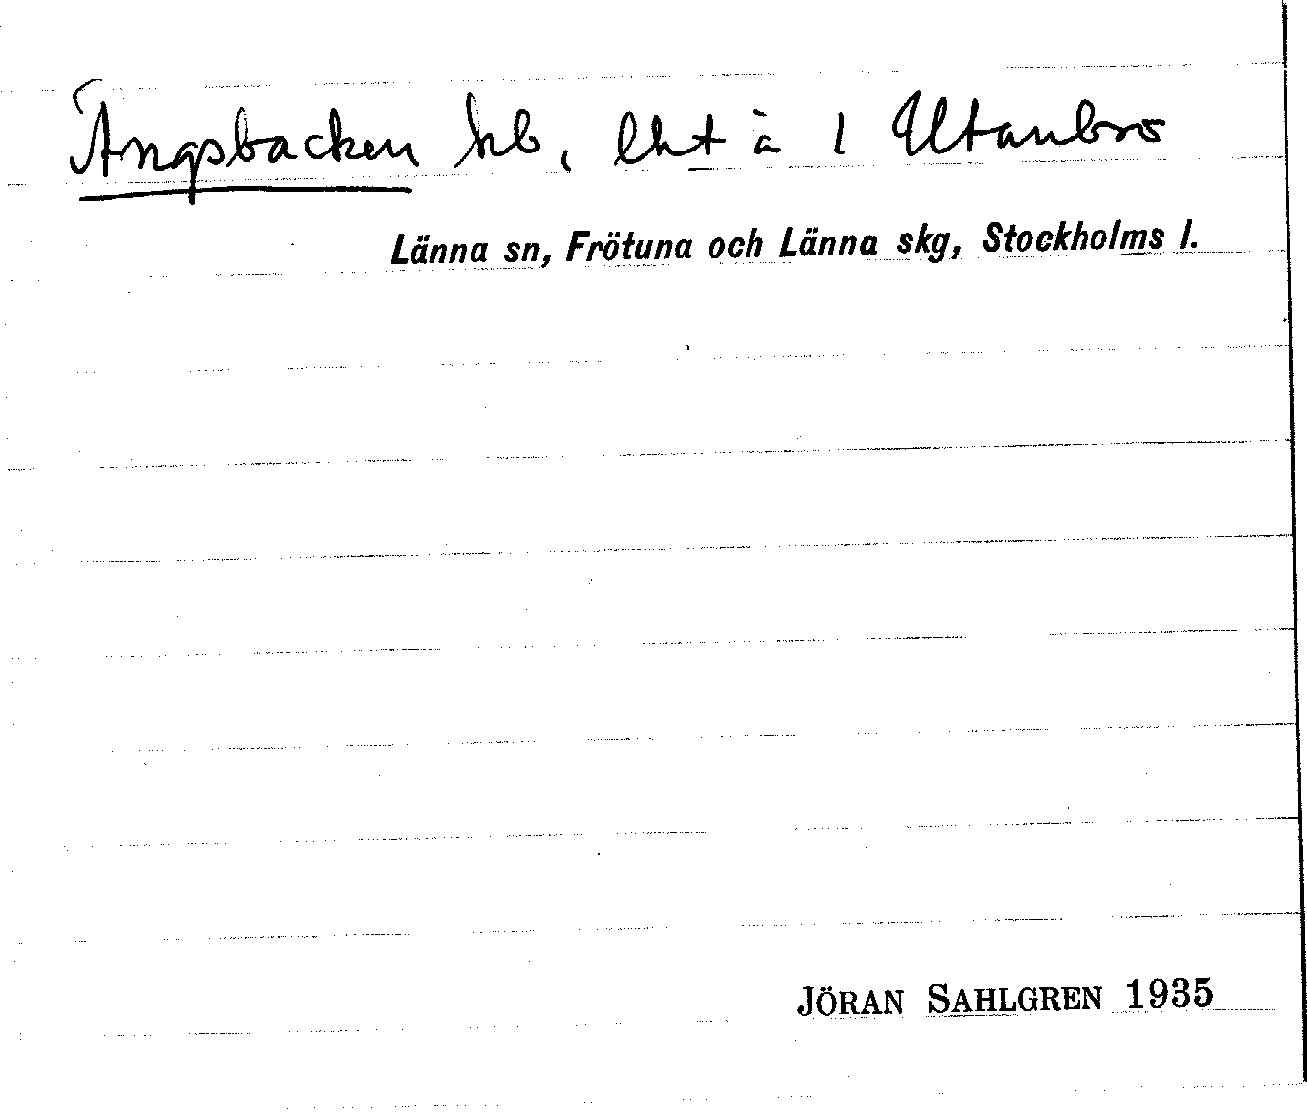 Ängsbacken hb, lht å 1 Utanbro
Länna sn, Frötuna och Länna skg, Stockholms l.
JÖRAN SAHLGREN 1935